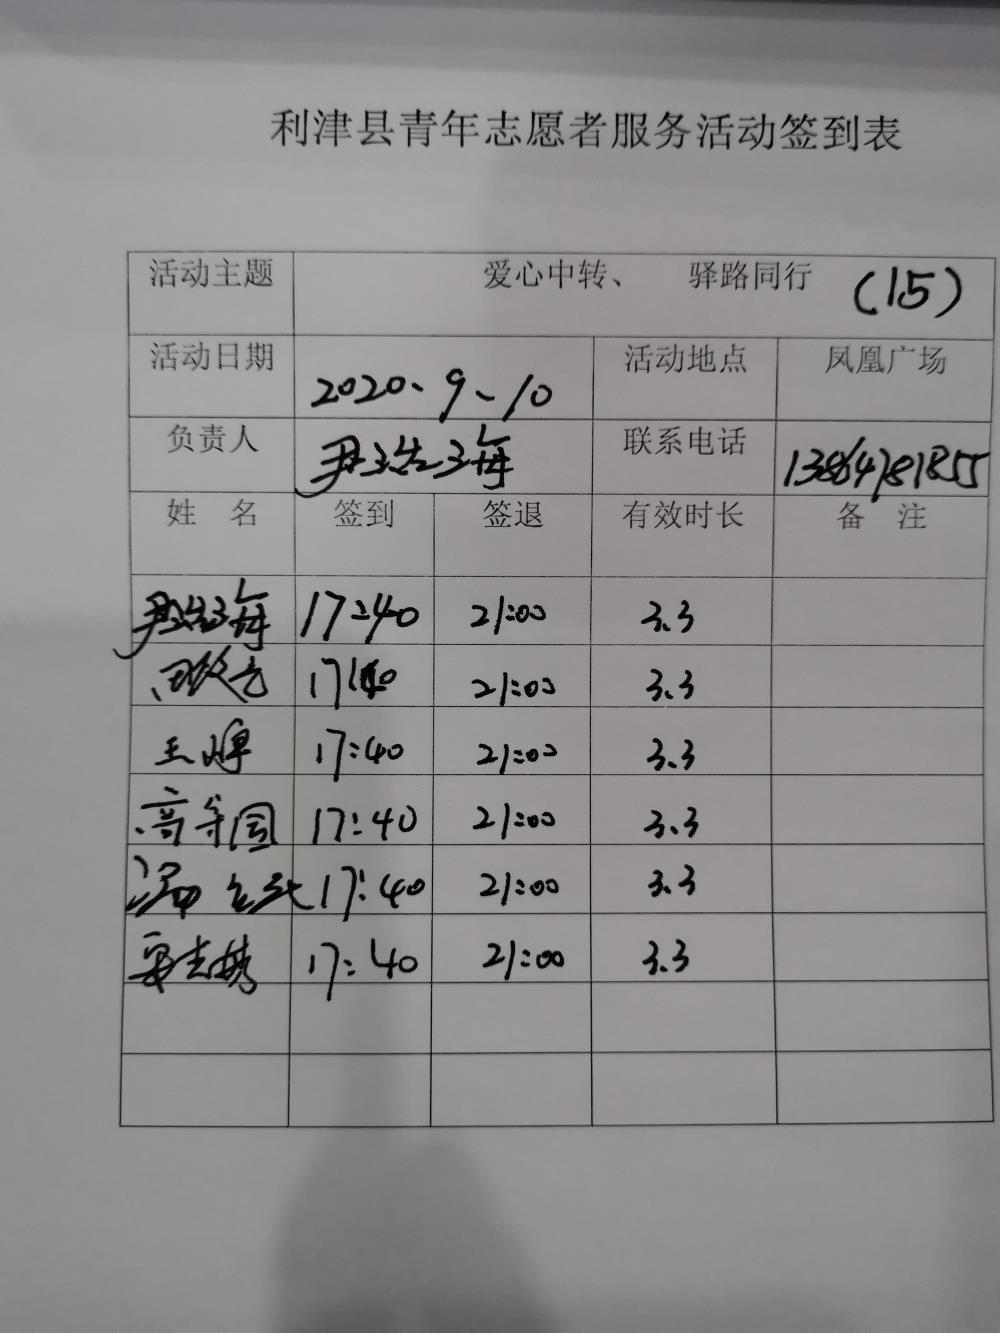 利津县青年志愿者服务活动签到表
活动主题 爱心中转、 驿路同行 (15)
活动日期 2020、9、10 活动地点 凤凰广场
负责人 尹浩海 联系电话 13864781855
姓 名 签到 签退 有效时长 备 注
尹浩海 17:40 21:00 3.3
17:40 21:00 3.3
王婷 17:40 21:00 3.3
高等国 17:40 21:00 3.3
17:40 21:00 3.3
17:40 21:00 3.3